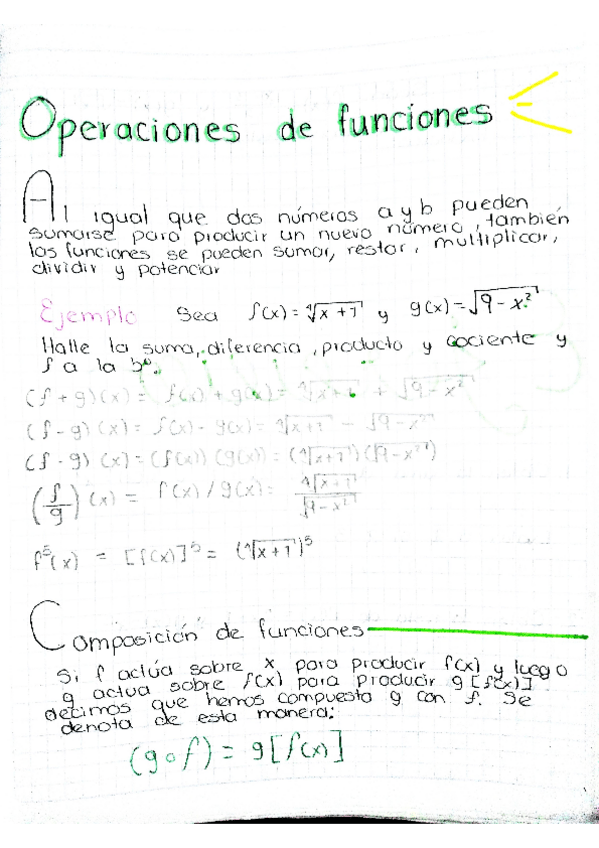 Operaciones de funciones
Al igual que dos números a y b pueden
sumarse para producir un nuevo número, también
las funciones se pueden sumar, restar, multiplicar,
dividir y potenciar
Ejemplo Sea f(x) = ∜(x + 1) y g(x) = √(9 - x²)
Halle la suma, diferencia, producto y cociente y
f a la 5º.
(f + g)(x) = f(x) + g(x) = ∜(x + 1) + √(9 - x²)
(f - g)(x) = f(x) - g(x) = ∜(x + 1) - √(9 - x²)
(f · g)(x) = (f(x))(g(x)) = (∜(x + 1))(√(9 - x²))
(f/g)(x) = f(x) / g(x) = ∜(x + 1) / √(9 - x²)
f⁵(x) = [f(x)]⁵ = (∜(x + 1))⁵
Composición de funciones
Si f actúa sobre x para producir f(x) y luego
g actua sobre f(x) para producir g[f(x)]
decimos que hemos compuesto g con f. Se
denota de esta manera:
(g∘f) = g[f(x)]